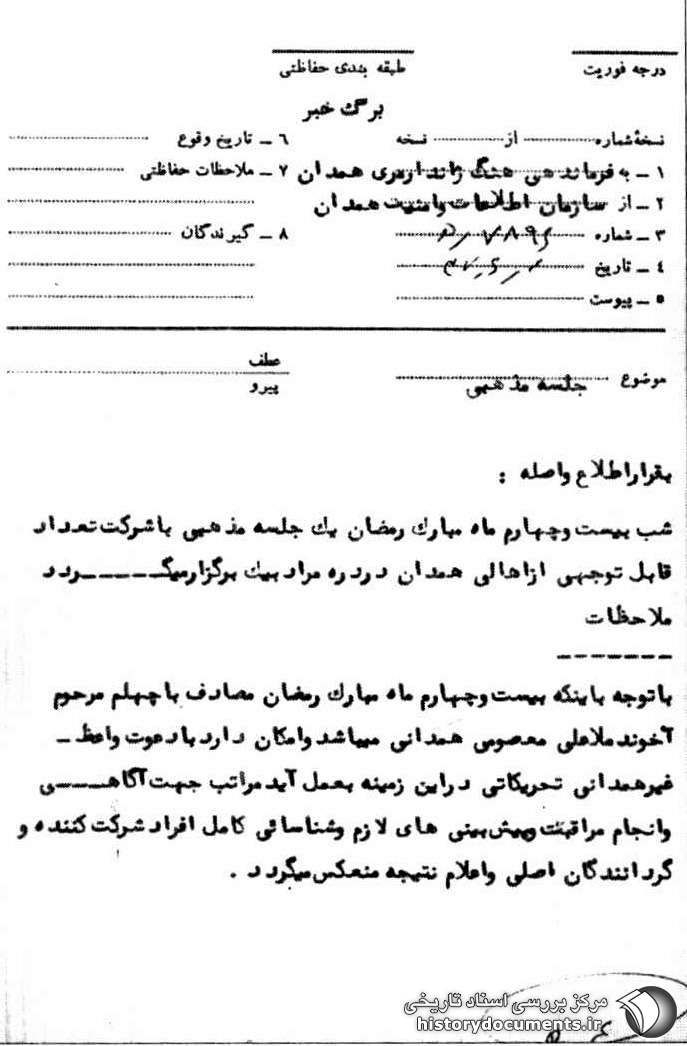 درجه فوریت
طبقه بندی حفاظتی
برگ خبر
نسخهٔ شماره ........ از ........ نسخه
۱ – به فرماندهی هنگ ژاندارمری همدان
۲ – از سازمان اطلاعات وامنیت همدان
۳ – شماره
۴ – تاریخ
۵ – پیوست
۶ – تاریخ وقوع
۷ – ملاحظات حفاظتی
۸ – گیرندگان
موضوع جلسه مذهبی
عطف
پیرو
بقرار اطلاع واصله :
شب بیست وچهارم ماه مبارك رمضان یك جلسه مذهبی باشرکت تعداد
قابل توجهی ازاهالی همدان دردره مرادبیك برگزارمیگـــــردد
ملاحظات
باتوجه باینکه بیست وچهارم ماه مبارك رمضان مصادف باچهلم مرحوم
آخوندملاعلی معصومی همدانی میباشد وامکان دارد بادعوت واعظ ـ
غیرهمدانی تحریکاتی دراین زمینه بعمل آید مراتب جهت آگاهــــی
وانجام مراقبت وپیش بینی های لازم وشناسائی کامل افراد شرکت کننده و
گردانندگان اصلی واعلام نتیجه منعکس میگردد .
مرکز بررسی اسناد تاریخی
historydocuments.ir